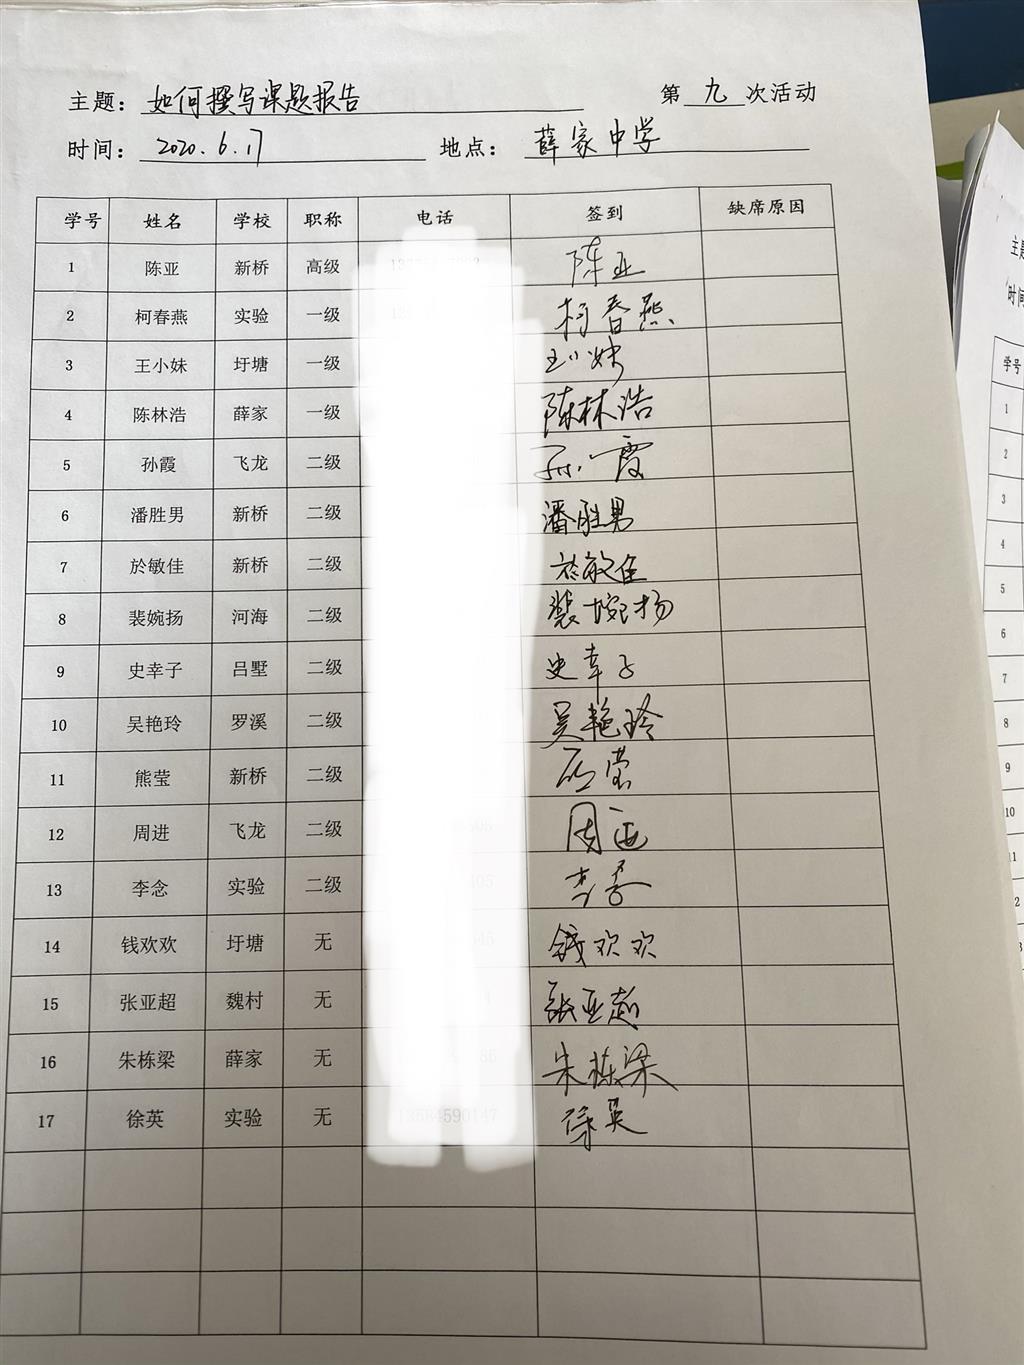 主题：如何撰写课题报告 第 九 次活动
时间：2020.6.17 地点：薛家中学
学号 姓名 学校 职称 电话 签到 缺席原因
1 陈亚 新桥 高级 陈亚
2 柯春燕 实验 一级 柯春燕
3 王小妹 圩塘 一级 王小妹
4 陈林浩 薛家 一级 陈林浩
5 孙霞 飞龙 二级 孙霞
6 潘胜男 新桥 二级 潘胜男
7 於敏佳 新桥 二级 於敏佳
8 裴婉扬 河海 二级 裴婉扬
9 史幸子 吕墅 二级 史幸子
10 吴艳玲 罗溪 二级 吴艳玲
11 熊莹 新桥 二级 熊莹
12 周进 飞龙 二级 周进
13 李念 实验 二级 李念
14 钱欢欢 圩塘 无 钱欢欢
15 张亚超 魏村 无 张亚超
16 朱栋梁 薛家 无 朱栋梁
17 徐英 实验 无 徐英
主题
时间
学号
1
2
3
4
5
6
7
8
9
10
11